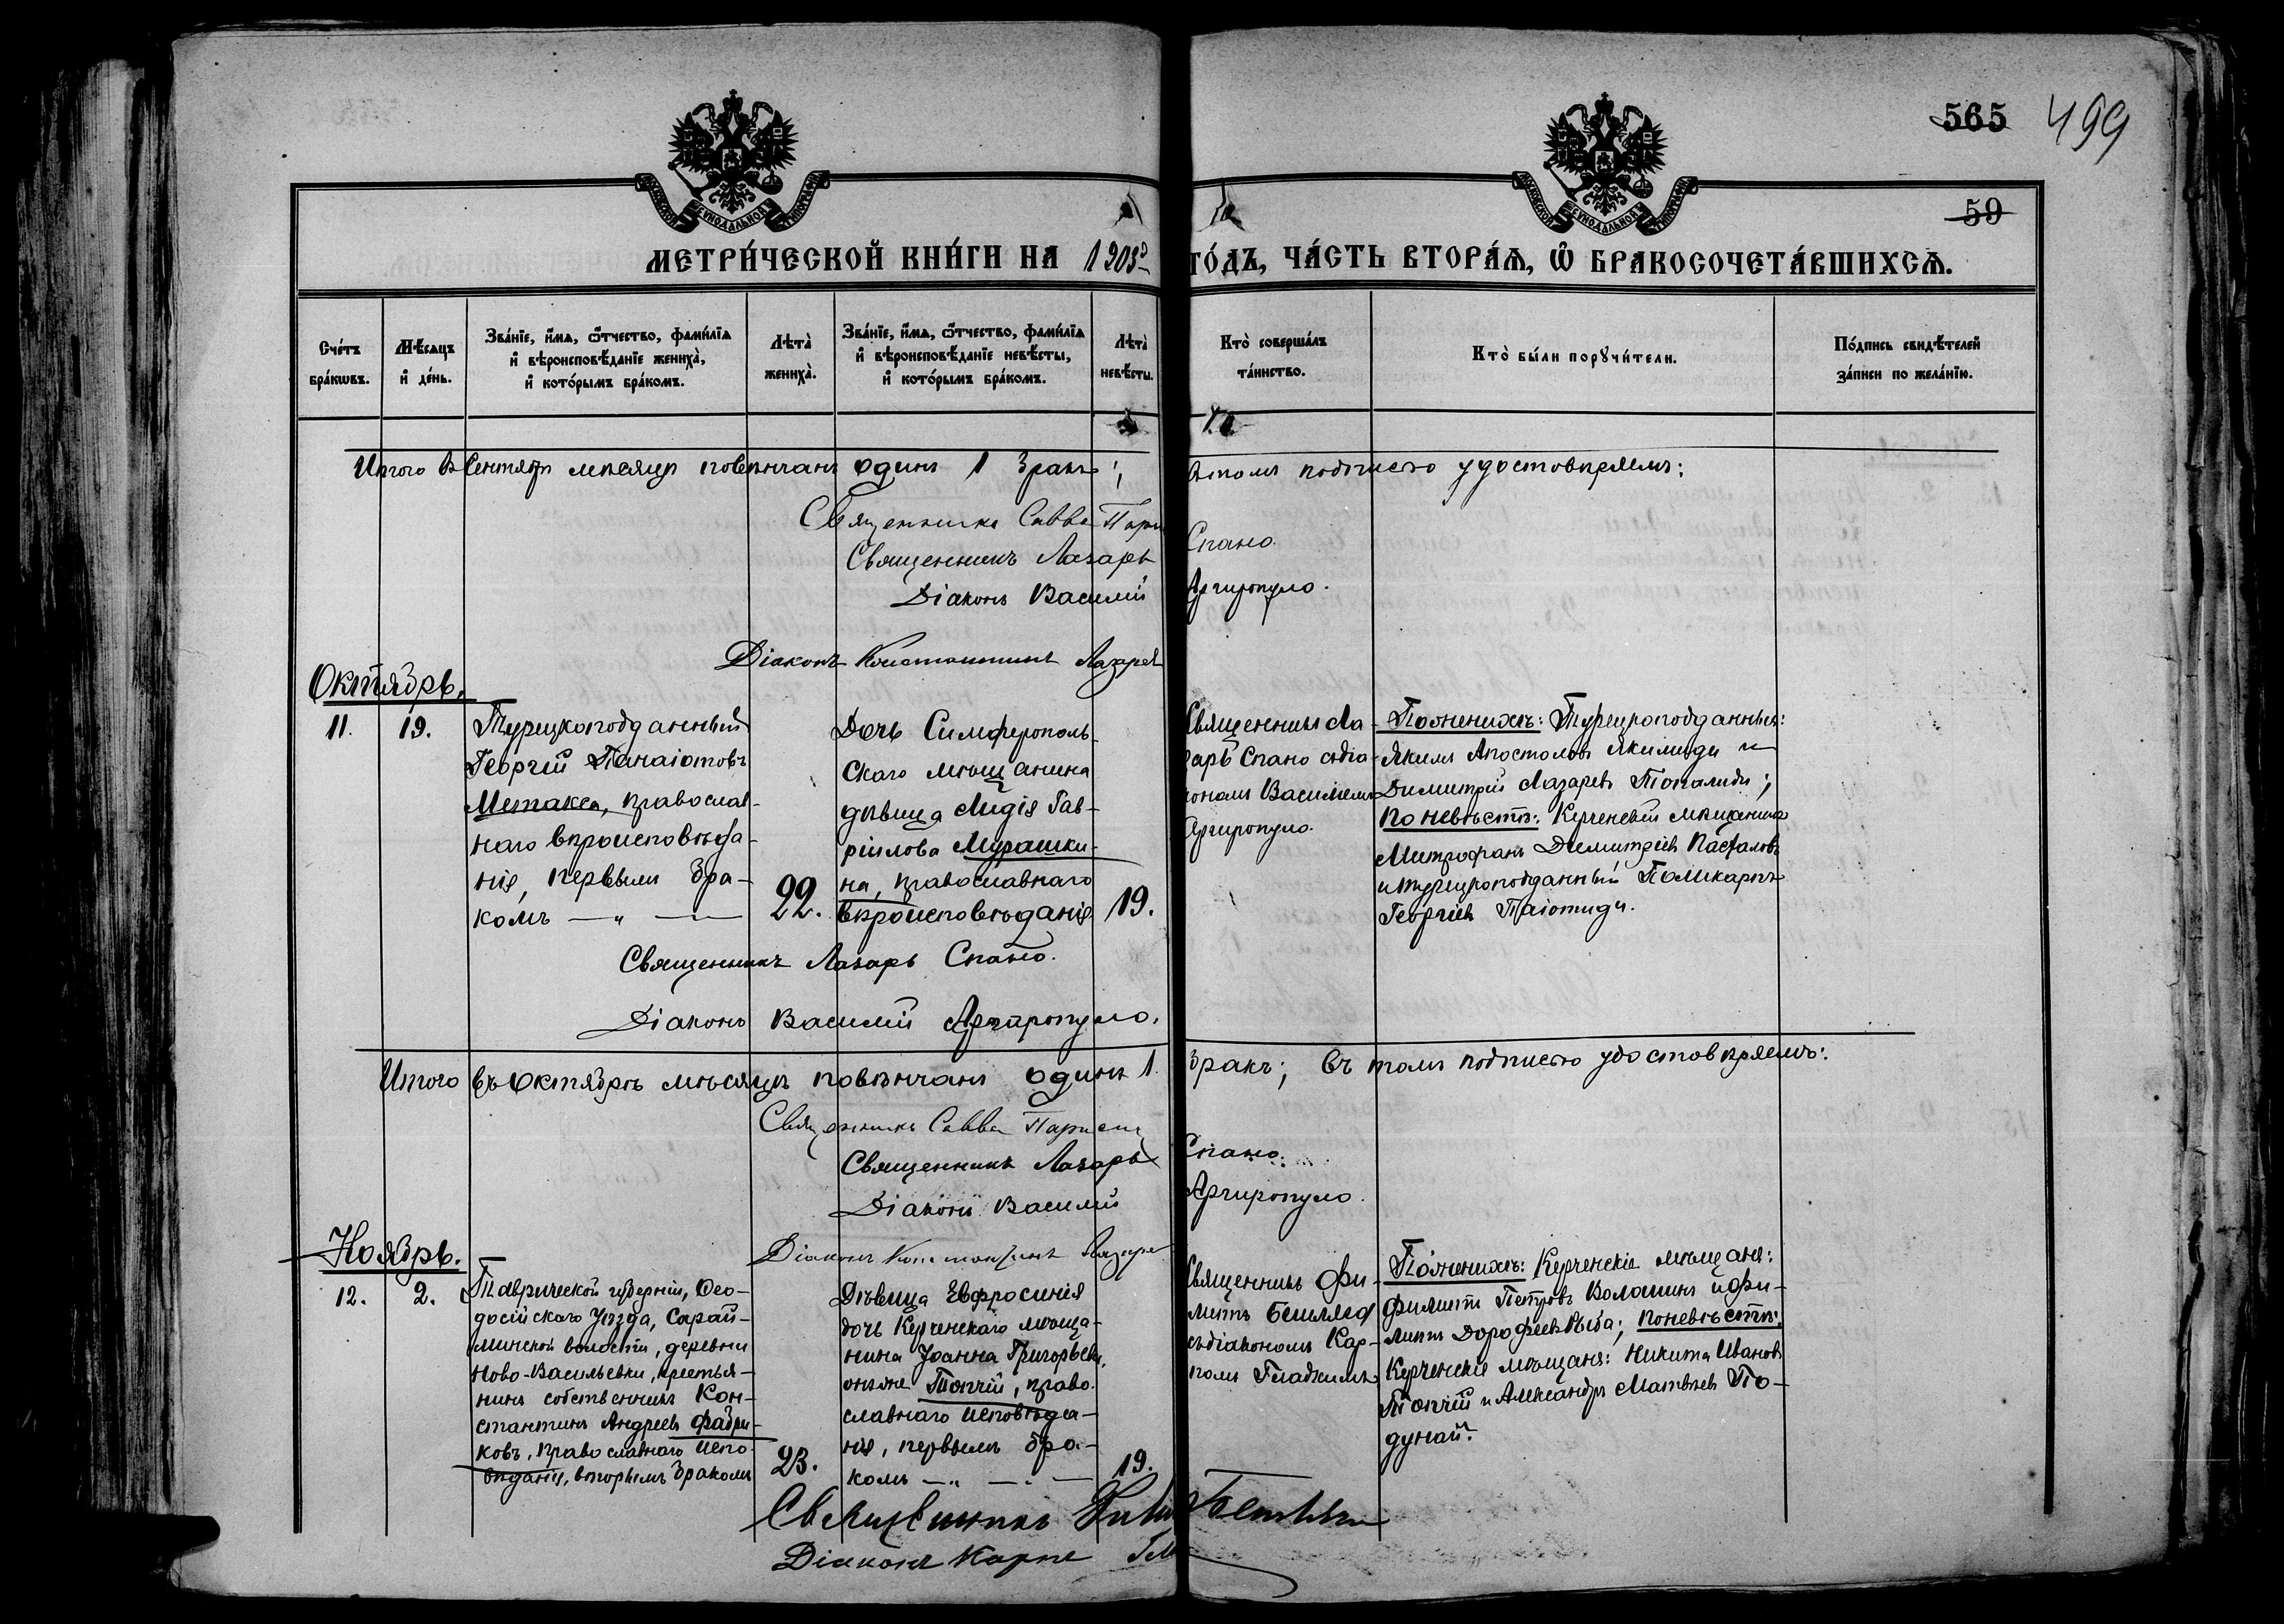 565 499
59
МОСКОВСКОЙ СѴНОДАЛЬНОЙ ТИПОГРАФІИ
МОСКОВСКОЙ СѴНОДАЛЬНОЙ ТИПОГРАФІИ
МЕТРИ́ЧЕСКОЙ КНИ́ГИ НА 1903 ГО́ДЪ, ЧА́СТЬ ВТОРА́Ѧ, Ѽ БРАКОСОЧЕТА́ВШИХСѦ.
Сче́тъ
бра́кѡвъ.
Мѣ́сѧцъ
и҆ де́нь.
Зва́нїе, и҆́мѧ, ѻ҆́тчество, фами́лїѧ
и҆ вѣроисповѣ́данїе жениха̀,
и҆ кото́рымъ бра́комъ.
Лѣта̀
жениха̀.
Зва́нїе, и҆́мѧ, ѻ҆́тчество, фами́лїѧ
и҆ вѣроисповѣ́данїе невѣ́сты,
и҆ кото́рымъ бра́комъ.
Лѣта̀
невѣ́сты.
Кто̀ соверша́лъ
та́инство.
Кто̀ бы́ли порꙋчи́тели.
По́дпись свидѣ́телей
за́писи по жела́нїю.
Итого въ Сентябрѣ мѣсяцѣ повѣнчанъ одинъ 1 бракъ; въ томъ подписью удостовѣряемъ:
Священникъ Савва
Священникъ Лазарь Спано.
Діаконъ Василій Аргиропуло.
Діаконъ Константинъ Лазарев
Октябрь.
11.
19.
Турецкоподданный
Георгій Панаіотовъ
Метакса, православ-
наго вѣроисповѣда-
нія, первымъ бра-
комъ — „ —
22.
Дочь Симферополь-
скаго мѣщанина
дѣвица Лидія Гав-
ріилова Мурашки-
на, православнаго
вѣроисповѣданія
19.
Священникъ Ла-
зарь Спано съ діа-
кономъ Василіемъ
Аргиропуло.
По женихѣ: Турецкоподданные:
Якимъ Апостоловъ Якимиди и
Димитрій Лазаревъ Топалиди;
По невѣстѣ: Керченскій мѣщанинъ
Митрофанъ Димитріевъ Пасхаловъ
и турецкоподданный Поликарпъ
Георгіевъ Паіотиди.
Священникъ Лазарь Спано.
Діаконъ Василій Аргиропуло.
Итого въ Октябрѣ мѣсяцѣ повѣнчанъ одинъ 1 бракъ; въ томъ подписью удостовѣряемъ:
Священникъ Савва
Священникъ Лазарь Спано.
Діаконъ Василій Аргиропуло.
Діаконъ Константинъ Лазарев
Ноябрь.
12.
2.
Таврической губерніи, Ѳео-
досійскаго уѣзда, Сарай-
минской волости, деревни
Ново-Васильевки, крестья-
нинъ собственникъ Кон-
стантинъ Андреевъ Фабри-
ковъ, православнаго испо-
вѣданія, вторымъ бракомъ
23.
Дѣвица Евфросинія
дочь Керченскаго мѣща-
нина Іоанна Григорьева,
Топчій, право-
славнаго исповѣда-
нія, первымъ бра-
комъ — „ — . —
19.
Священникъ Фи-
липпъ
съ діакономъ Кар-
помъ
По женихѣ: Керченскіе мѣщане:
Филиппъ Петровъ Волошинъ и Фи-
липпъ Дорофеевъ Рыба; по невѣстѣ:
Керченскіе мѣщане: Никита Ивановъ
Топчій и Александръ Матвѣевъ По-
дунай.
Священникъ
Діаконъ Карпъ